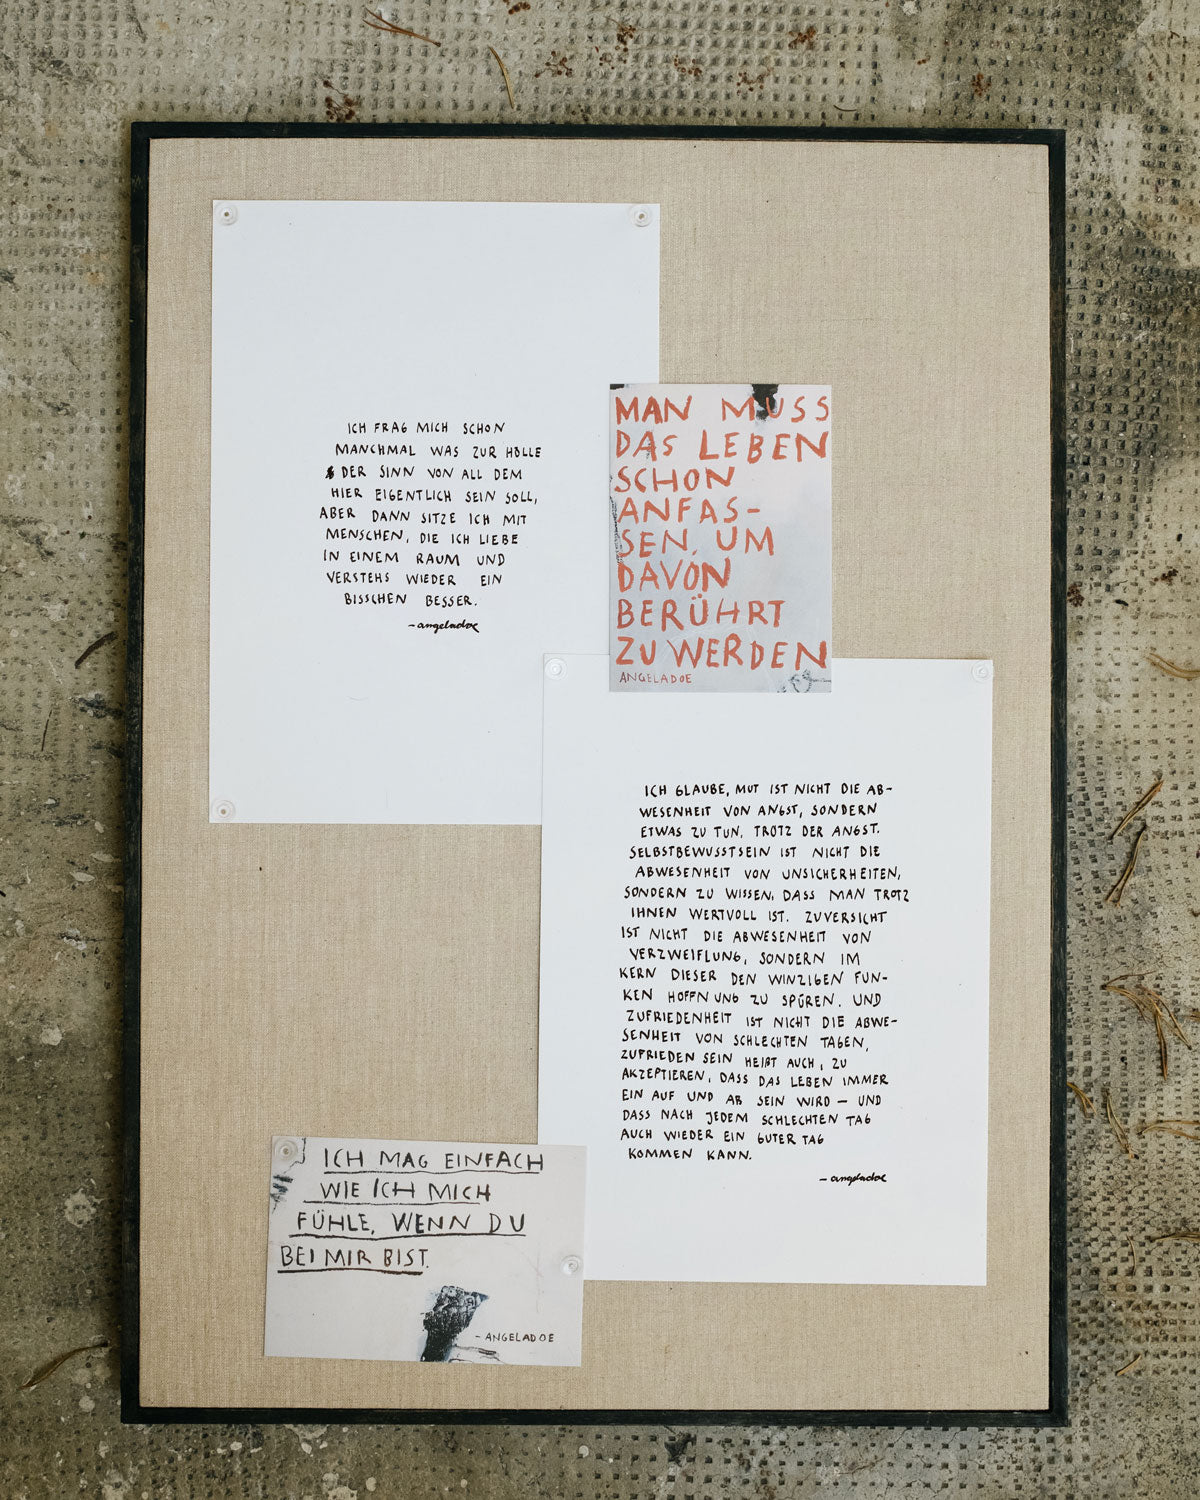 ICH FRAG MICH SCHON
MANCHMAL WAS ZUR HÖLLE
DER SINN VON ALL DEM
HIER EIGENTLICH SEIN SOLL,
ABER DANN SITZE ICH MIT
MENSCHEN, DIE ICH LIEBE
IN EINEM RAUM UND
VERSTEHS WIEDER EIN
BISSCHEN BESSER.
- angeladoe
MAN MUSS
DAS LEBEN
SCHON
ANFAS-
SEN, UM
DAVON
BERÜHRT
ZU WERDEN
ANGELADOE
ICH GLAUBE, MUT IST NICHT DIE AB-
WESENHEIT VON ANGST, SONDERN
ETWAS ZU TUN, TROTZ DER ANGST.
SELBSTBEWUSSTSEIN IST NICHT DIE
ABWESENHEIT VON UNSICHERHEITEN,
SONDERN ZU WISSEN, DASS MAN TROTZ
IHNEN WERTVOLL IST. ZUVERSICHT
IST NICHT DIE ABWESENHEIT VON
VERZWEIFLUNG, SONDERN IM
KERN DIESER DEN WINZIGEN FUN-
KEN HOFFNUNG ZU SPÜREN. UND
ZUFRIEDENHEIT IST NICHT DIE ABWE-
SENHEIT VON SCHLECHTEN TAGEN,
ZUFRIEDEN SEIN HEIßT AUCH, ZU
AKZEPTIEREN, DASS DAS LEBEN IMMER
EIN AUF UND AB SEIN WIRD – UND
DASS NACH JEDEM SCHLECHTEN TAG
AUCH WIEDER EIN GUTER TAG
KOMMEN KANN.
- angeladoe
ICH MAG EINFACH
WIE ICH MICH
FÜHLE, WENN DU
BEI MIR BIST.
- ANGELADOE